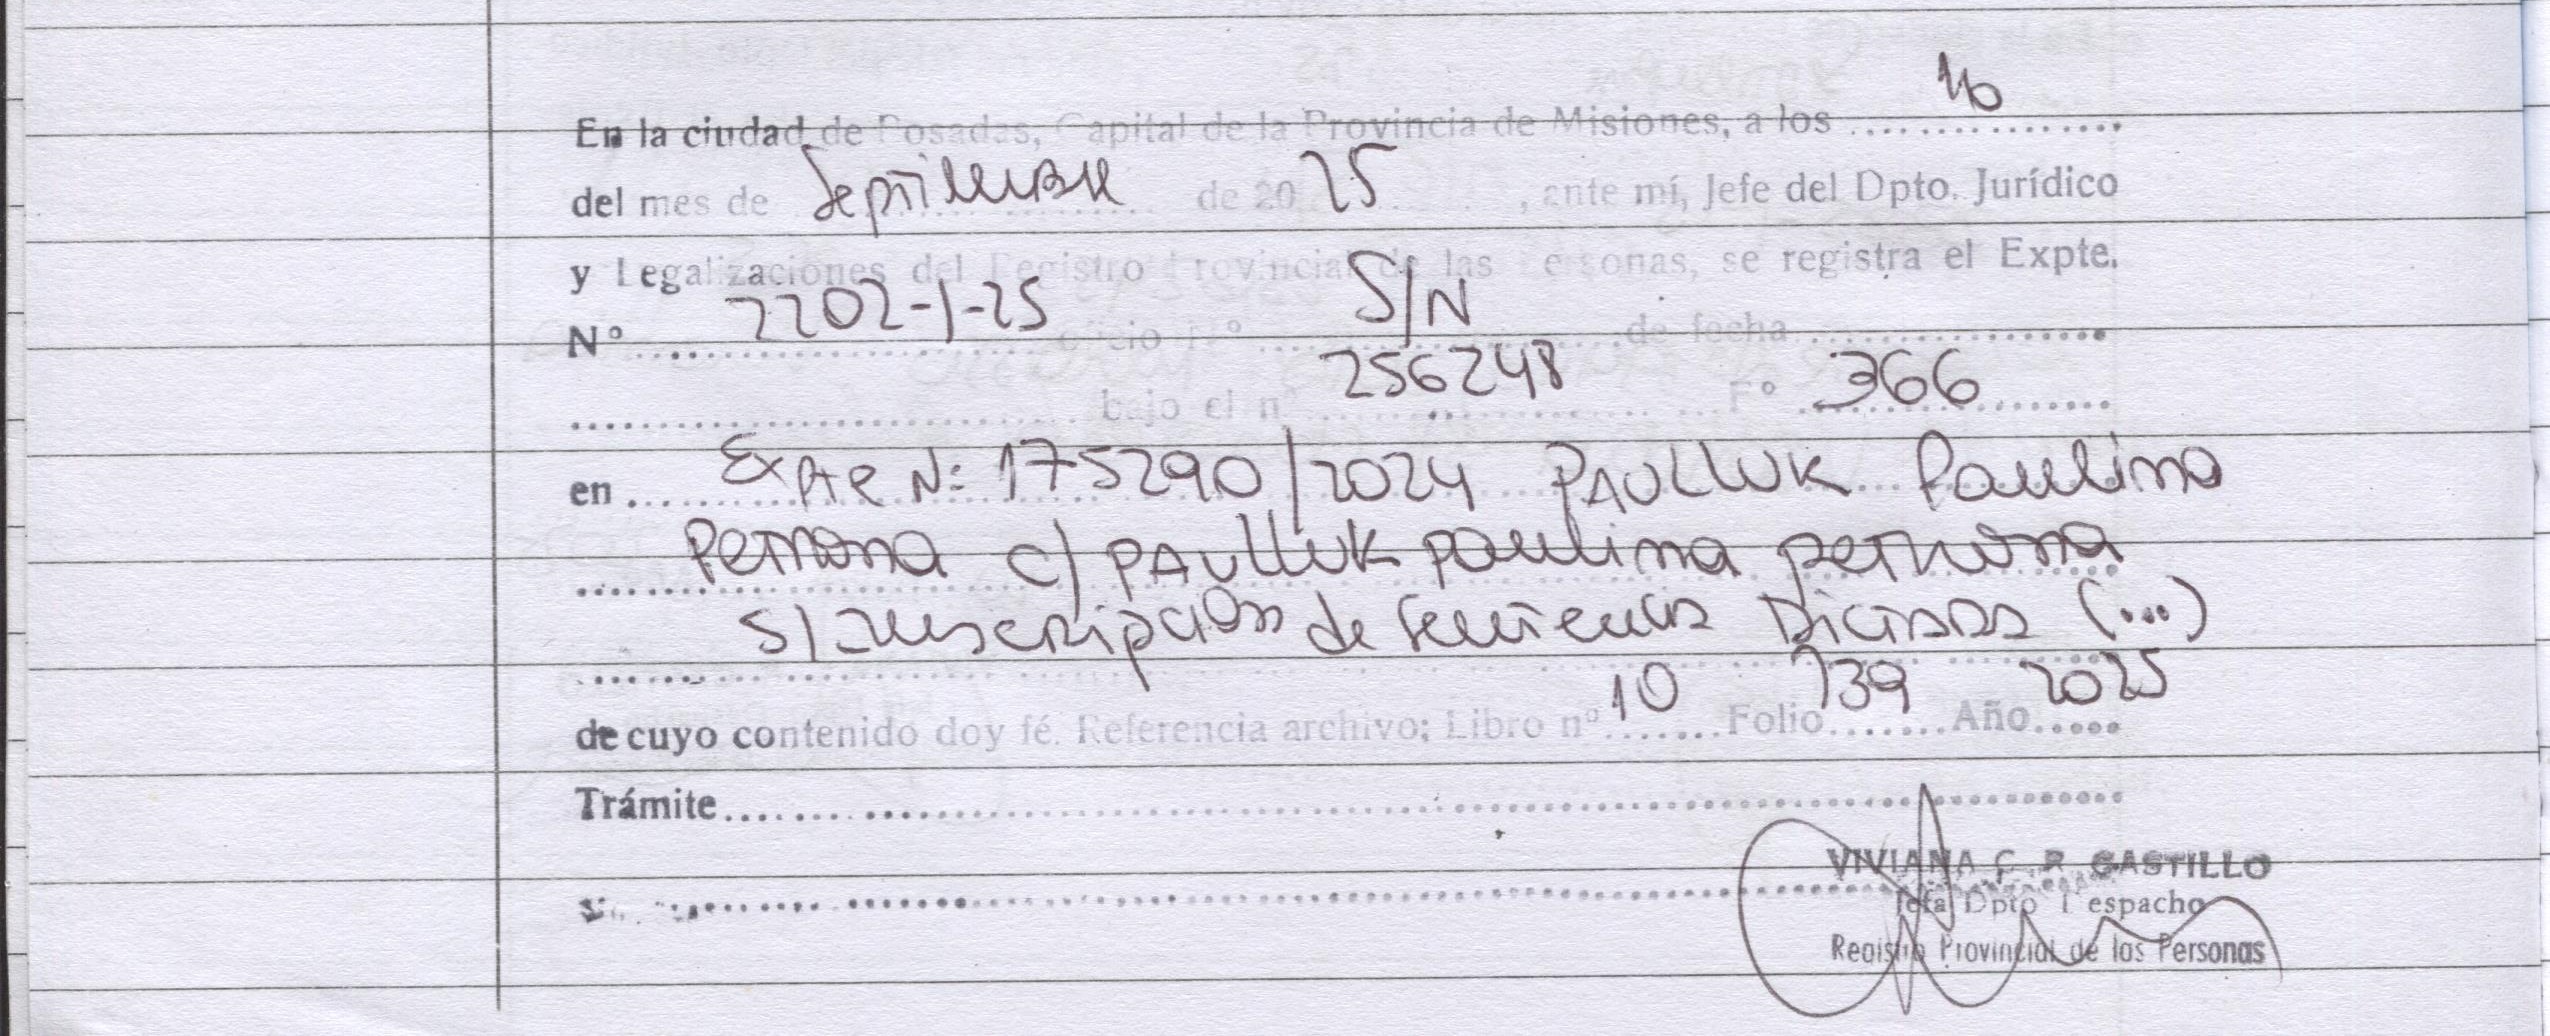 En la ciudad de Posadas, Capital de la Provincia de Misiones, a los 16
del mes de Septiembre de 2025, ante mí, Jefe del Dpto. Jurídico
y Legalizaciones del Registro Provincial de las Personas, se registra el Expte.
N° 2202-1-25 oficio N° S/N de fecha
bajo el n° 256248 F° 366
en Expte N: 175290/2024 PAULLUK Paulina
Petrona c/ PAULLUK paulina petrona
S/Inscripcion de Sentencia Dictada (...)
de cuyo contenido doy fé. Referencia archivo; Libro n° 10 Folio 739 Año 2025
Trámite
VIVIANA C. R. CASTILLO
Jefa Dpto Despacho
Registro Provincial de las Personas